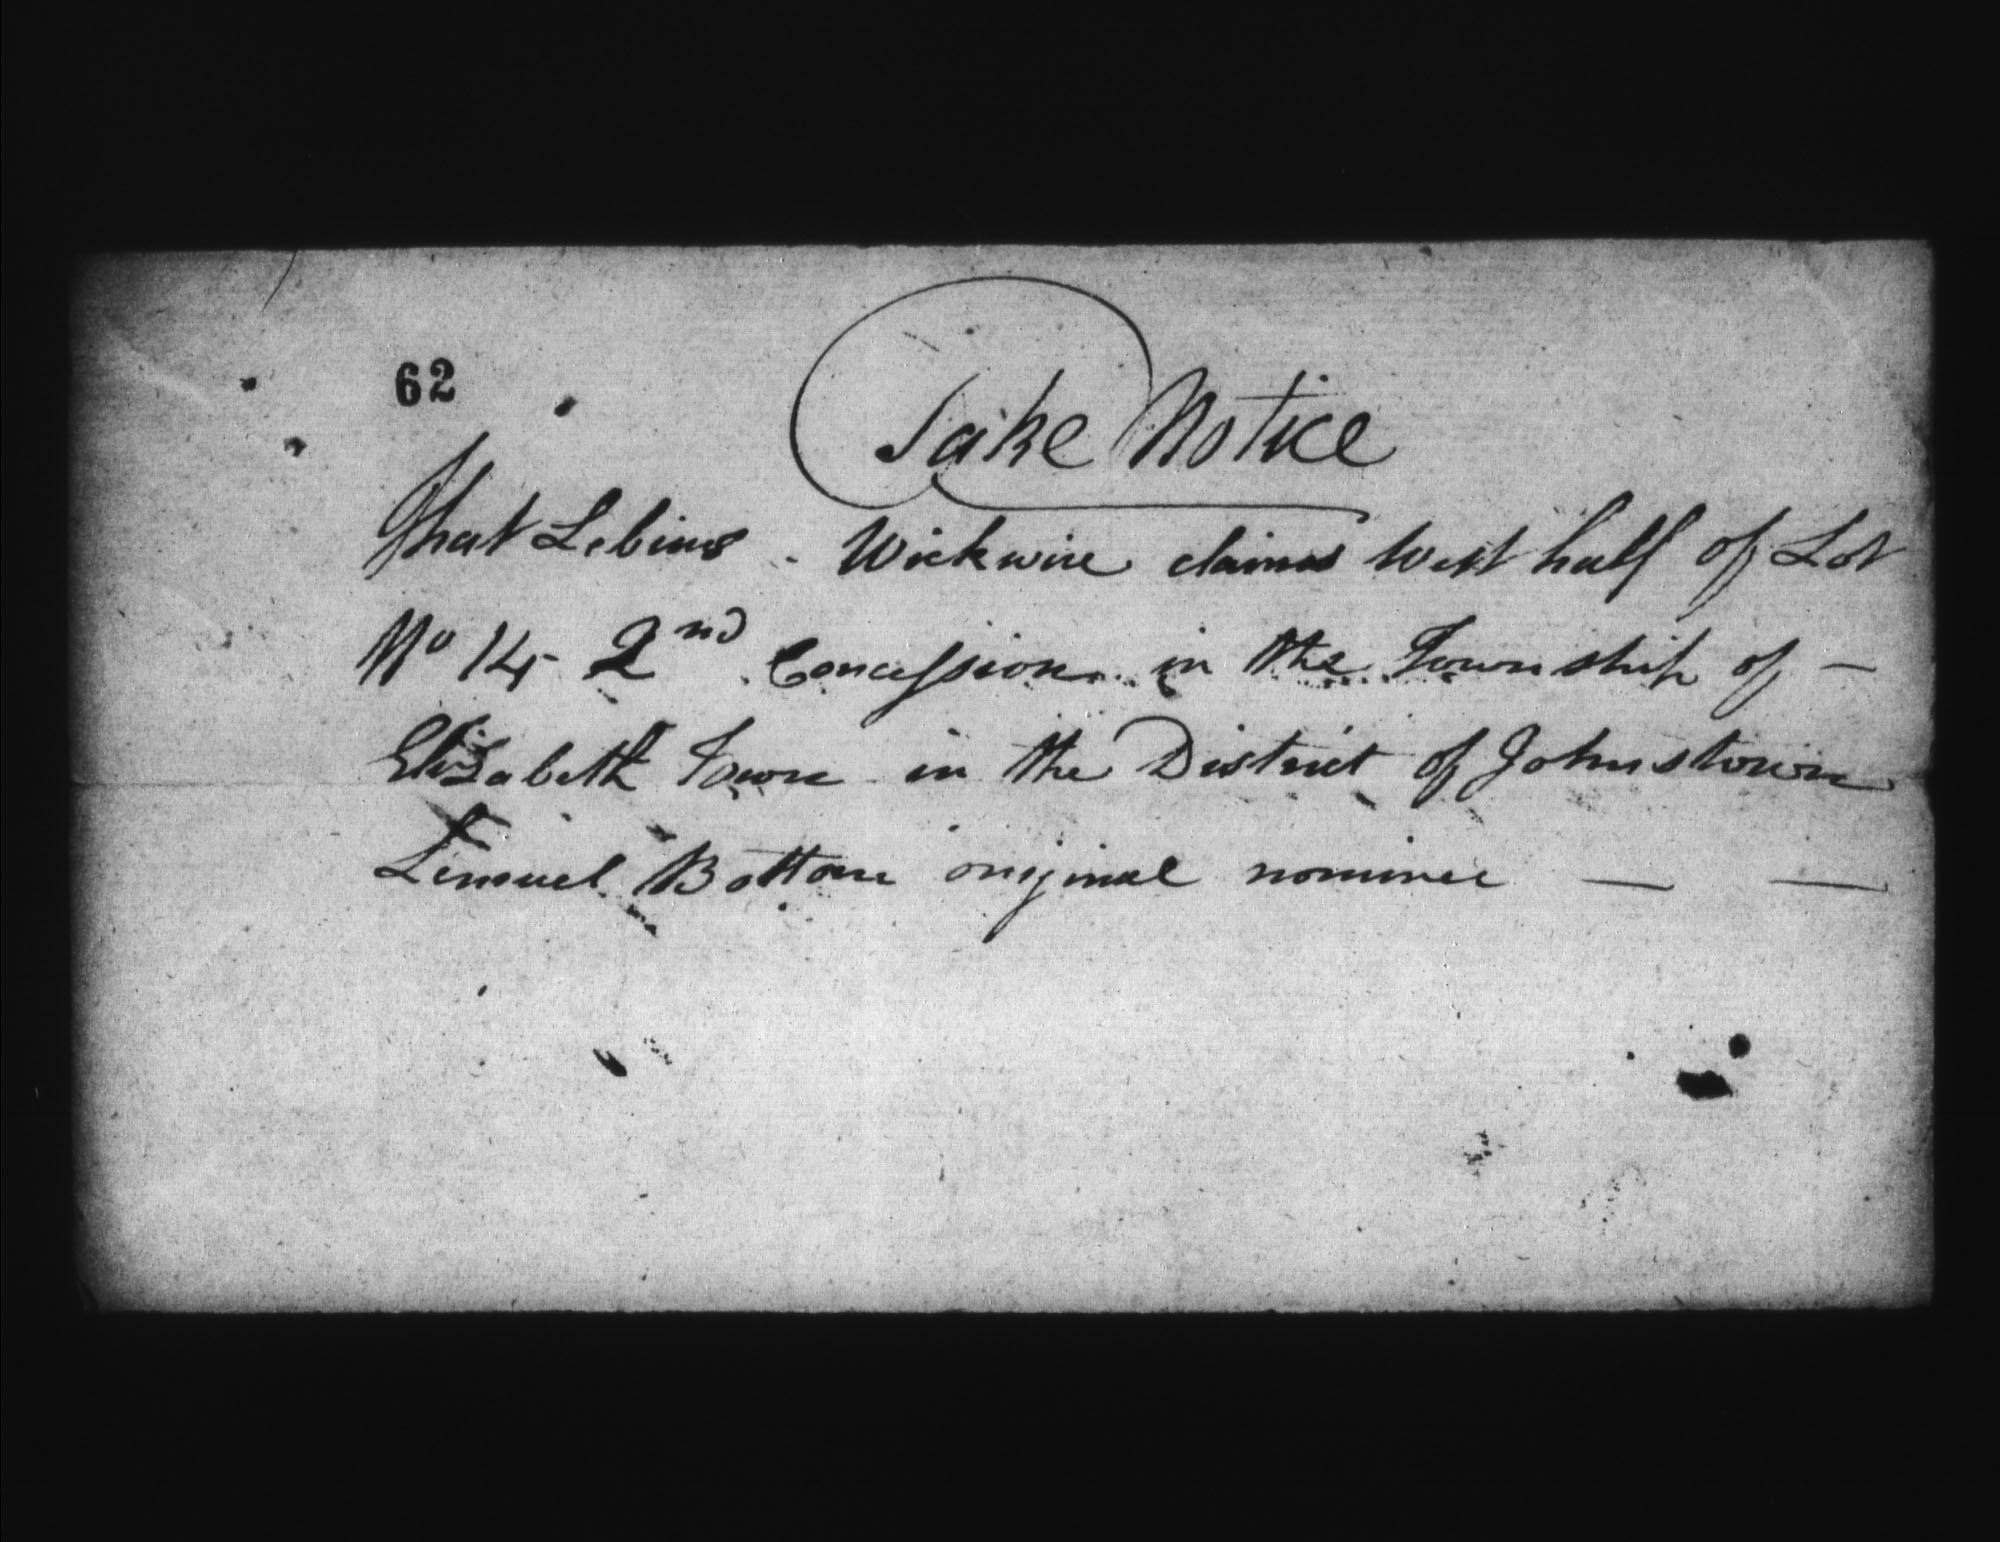 62
Take Notice
That Lebius - Wickwire claims West half of Lot
No 14 - 2nd Concession in the Township of -
Elizabeth Town in the District of Johnstown
Lemuel Bottom original nominee — —